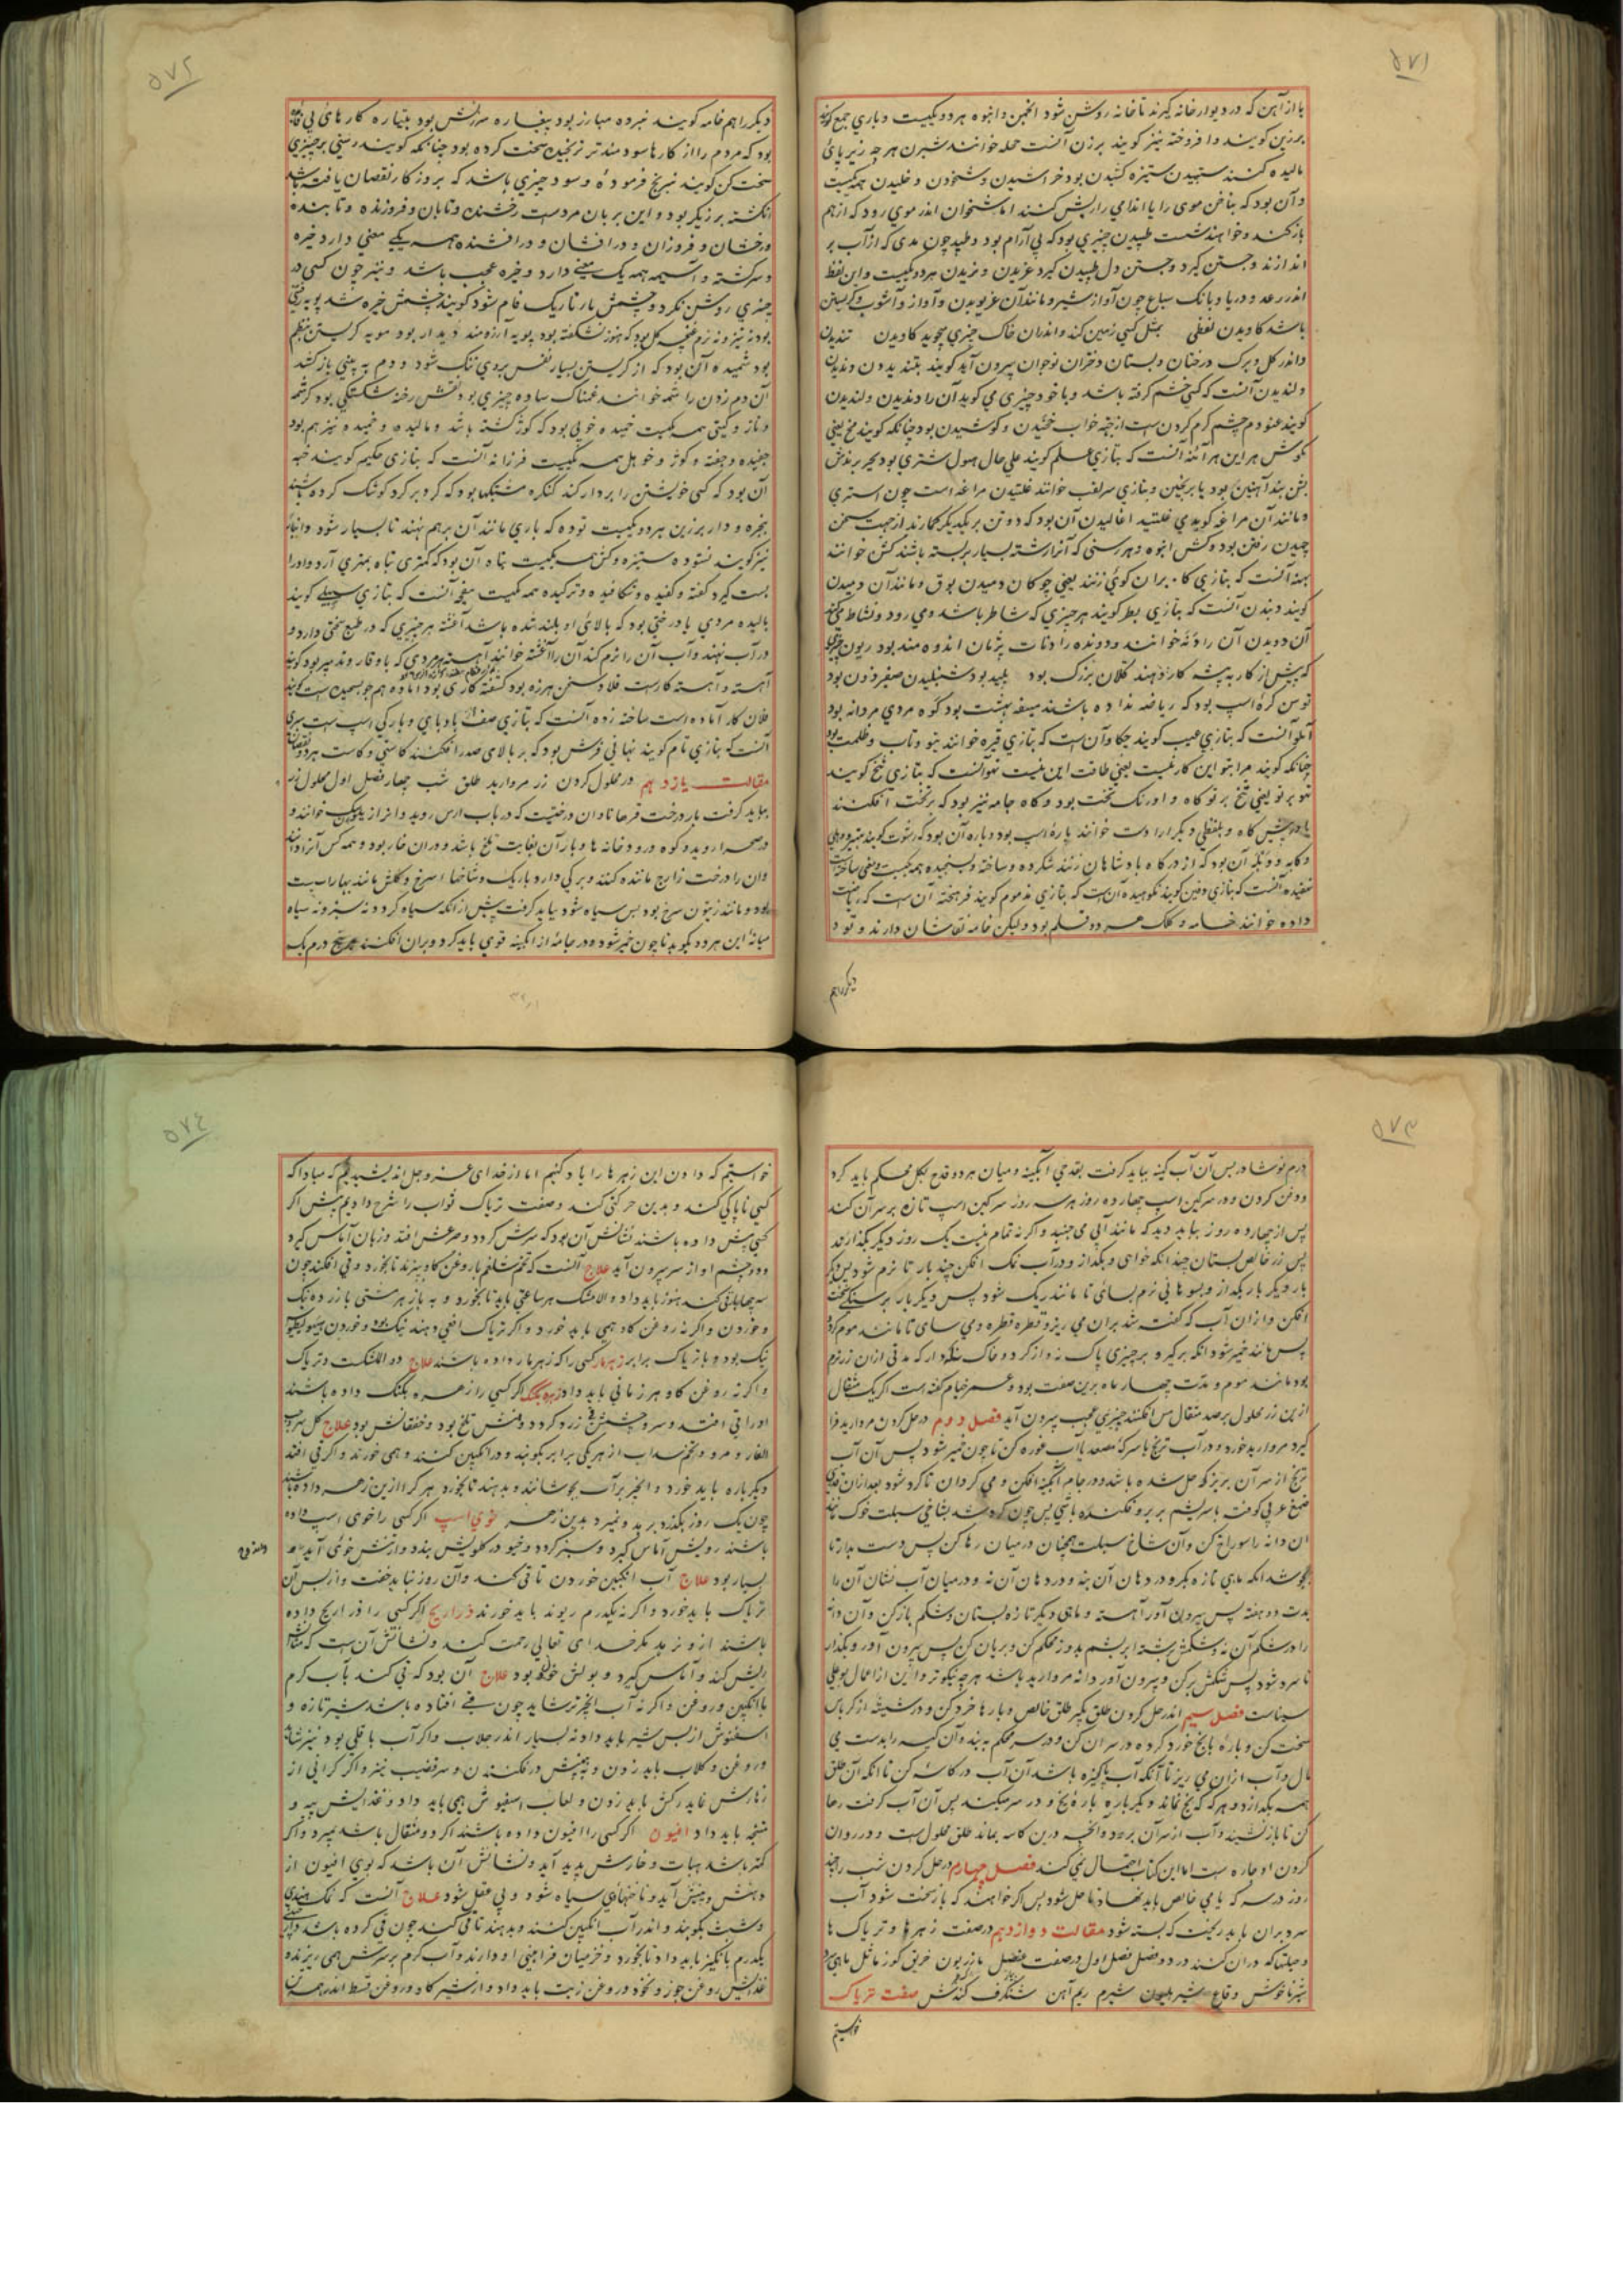 ۵۷۱
یا از آهن که در دیوار خانه گیرند تا خانه روشن شود انجمن و انبوه هر دو یکیست و باری جمع گویند
برزین گویند و افروخته نیز گویند برزن آنست محله خوانند شبرن هرچه زیر پای
مالیده کنند ستهیدن ستیزه کشیدن بود خراشیدن و شخودن و خلیدن همه یکیست
و آن بود که بناخن موی را یا اندامی را ریش کنند اما شخوان اندر موی رود که از هم
باز کنند و خواهند شست طپیدن چیزی بود که بی آرام بود و طپد چون ماهی که از آب بر
اندازند و جستن گیرد و جستن دل طپیدن گیرد غریدن و نریدن هر دو یکیست و این لفظ
اندر رعد و دریا و بانک سباع چون آواز شیر و مانند آن غریویدن و آواز و آشوب و گریستن
باشد کاویدن لفظی بمثل کسی زمین کند و اندران خاک چیزی جوید کاویدن تندیدن
و اندر گل و برک درختان و پستان دختران نوجوان بیرون آید گویند بتندیدن و دندیدن
و لندیدن آنست که کسی خشم گرفته باشد و با خود چیزی می گوید آن را دندیدن و لندیدن
گویند غنودم چشم گرم کردن است از بهر خواب خفتیدن و کوشیدن بود چنانکه گویند مخ یعنی
مکوش هر این هر آئنه آنست که بتازی علم گویند علی حال هسول شتری بود
بود یا بزنجیر و بتازی سر لقب خوانند غلتیدن مراغه است چون استری
و مانند آن مراغه گویندی غلتید اغالیدن آن بود که دو تن بر یکدیگر کمارند از جهت سخن
چیدن رفتن بود و کشن انبوه و هر رسنی که آنرا رشته بسیار بر بسته باشند کشن خوانند
پهنه آنست که بتازی کا بران گوی زنند یعنی چوکان دمیدن بوق و مانند آن دمیدن
گویند دیدن آنست که بتازی بطر گویند هر چیزی که شاطر باشد و می رود و نشاط می کند
آن دویدن آن را دنه خوانند و دونده را دنات پژمان اندوه مند بود ریون چیزی
که پیش از کار به پیشه کار دهند کلان بزرگ بود پلید بود شنبلیدن صفیر زدن بود
توسن کره اسپ بود که ریاضه نداده باشند مینو بهشت بود کوه مردی مردانه بود
آهو آنست که بتازی عیب گویند جکاو آن است که بتازی قبره خوانند تیو و تاب و طلعت بود
چنانکه گویند مرا تیو این کار نیست یعنی طاقت این نیست تهو آنست که بتازی تنخ گویند
تهو بر تو یعنی تنخ بر تو کاه و اورنک تخت بود و کاه جامه نیز بود که بر تخت افکنند
یا در پیش کاه و بلفظی دیگر او را دست خوانند باره اسپ بود و باره آن بود که رشوت گویند تبیره
و کابه و دبیله آن بود که از درگاه بادشاهان زنند شکرده و ساخته و بسیجیده همه یکیست و یعنی ساخته
نهفیده آنست که بتازی دفین گویند نکوهیده آن است که بتازی مذموم گویند فرهخته آن ست که ریاضت
داده خوانند خامه و کلک هر دو قلم بود ولیکن خامه نقاشان دارند و تو د
دیگر را هم

۵۷۲
دیگر را هم خامه گویند نبرده مبارز بود بیغاره سرزنش بود بتیاره کارهای بی فائده
بود که مردم را از کارها سودمندتر ترنجیدن سخت کرده بود چنانکه گویند رسنی بر چیزی
سخت کن گویند ترنج فرموده و سود چیزی باشد که بروز کار نقصان یافته باشد
انکشته برزیگر بود و این بربان مرد ست رخشنده و تابان و فروزنده و تابنده
و رخشان و فروزان و درافشان و درافشنده همه یکی معنی دارد خیره
و سرگشته و آسیمه همه یک معنی دارد و خیره عجب باشد و نیز چون کسی در
چیزی روشن نگرد و چشمش بار تاریک فام شود گویند چشمش خیره شد پویه رفتن
بود نه تیز و نه نرم غنچه گل بود که هنوز نشکفته بود پویه آرزومند دیدار بود مویه گریستن بنظم
بود شمیده آن بود که از گریستن بسیار نفس بروی تنگ شود و دم به بینی باز کشد
آن دم زدن را شمه خوانند غمناک ساده چیزی بود نقش رخنه شکستگی بود کرشمه
و ناز و کشی همه یکیست خمیده خوبی بود که کوژ گشته باشد و مالیده و خمیده نیز هم بود
جفیده و جفته و کوژ و خوهل همه یکیست فرزانه آنست که بتازی حکیم گویند خبه
آن بود که کسی خویشتن را بردار کند کنگره شبکها بود که گرد بر گرد کوشک کرده باشند
پنجره و دار بزرین هر دو یکیست توده که باری مانند آن بر هم نهند تا بسیار شود و انبار
نیز گویند نستوه ستیزه و کن همه یکیست پناه آن بود که کمتری تباه بمهتری آرد و او را
بست گیرد کفته و کفیده و شکافیده و ترکیده همه یکیست میغ آنست که بتازی سپیلی گویند
بالیده مردی یا درختی بود که بالای او بلند شده باشد آغشته هر چیزی که در طبع سختی دارد و
در آب نهند و آب آن را نرم کند آن را آغشته خوانند آهسته مردی که با وقار و تدبیر بود گویند
آهسته و آهسته کارست فلاده سخن هرزه بود کفته کاری بود آماده هم جو بسیجیده ست گویند
فلان کار آماده است ساخته زده آنست که بتازی صف باد پای و بارگی اسپ ست سری
آنست که بتازی تام گویند نهانی فرش بود که بر بالای صدر افکنند کاستی و کاست هر دو نقصان
مقالت یازدهم در محلول کردن زر مروارید طلق شب چهار فصل اول محلول زر
بباید گرفت بار درخت قرهاناد ان درختیست که در باب ارس روید و انرا از یدیک خوانند و
در صحرا روید و کوه و رودخانه ها و بار آن بغایت تلخ باشد و دران خار بود و همه کس آنرا داند
وان را درخت زارج مانده کنند و برکی دارد باریک و شاخها سرخ و گلش مانند بهار است
و مانند زیتون سرخ بود پس سیاه شود بباید گرفت پیش از آنکه سیاه گردد نه سبز و نه سیاه
میانه این هر دو بکوبد تا چون خمیر شود و در جامه از ابگینه قوی باید کرد و بران افکنند پنج درم یک

۵۷۳
درم نوشادر پس آن آبگینه بباید گرفت بقدحی آبگینه و میان هر دو قدح بگل محکم باید کرد
و دفن کردن و در سرگین اسپ چهارده روز هر سه روز سرگین اسپ تازه بر سر آن کند
پس از چهارده روز بباید دید که مانند آبی می جنبد و اگر نه تمام نیست یک روز دیگر بگذارند
پس زر خالص بستان چندانکه خواهی و بگداز و در آب نمک افکن چند بار تا نرم شود پس دیگر
بار دیگر بار بگداز و بسوهانی نرم بسای تا مانند ریگ شود پس دیگر بار بر سنگی سخت
افکن و ازان آب که گفته شد بران می ریز و قطره قطره و می سای تا مانند موم گردد
پس مانند خمیر شود انگه برگیر و بر چیزی پاک نه و از گرد و خاک نگه دار که مدتی ازان زر نرم
بود مانند موم و مدت چهار ماه برین صفت بود و عمر خیام گفته است اگر یک مثقال
ازین زر محلول بر صد مثقال مس افکنند چیزی عجب بیرون آید فصل دوم در حل کردن مروارید فرا
گیرد مروارید خورد و در آب ترنج یا سرکه مصعد یا آب غوره کن تا چون خمیر شود پس آن آب
ترنج از سر آن بریز کو حل شده باشد و در جام آبگینه افکن و می گردان تا گرد شود بعد ازان قدری
صمغ عربی کوفته با سریشم بر برو فکنده باشی پس چون گرد شد بشاخی سبلت خوک نیز
ان دانه را سوراخ کن و آن شاخ سبلت همچنان در میان رها کن پس دست بدار تا
بخوشد انگه ماهی تازه بگیر و در دهان آن بنه و در دهان آن نه و در میان آب نشان آن را
مدت دو هفته پس بیرون آور آهسته و ماهی دیگر تازه بستان و شکم باز کن و آن دانه
را در شکم آن نه و شکمش برشته ابریشم بدوز محکم کن و بریان کن پس بیرون آور و بگذار
تا سرد شود پس شکمش برکن و بیرون آور دانه مروارید باشد هرچه نیکوتر و این از اعمال بوعلی
سیناست فصل سیم اندر حل کردن طلق بگیر طلق خالص و پارها خرد کن و در شیشه از کرباس
سخت کن و پاره یا یخ خورد کرده در سر ان کن و در سر محکم به بند و آن کیسه را بدست می
مال و آب ازان می ریز تا آنکه آب پاکیزه باشد آن آب در کاسه کن تا انکه آن طلق
همه بگدازد و هر که که یخ نماند دیگر باره پاره یخ و در سر میکند پس آن آب گرفت رها
کن تا باز نشیند و آب از سر آن برود و آنچه درین کاسه بماند طلق محلول ست و در روان
کردن او چاره ست اما این کتاب احتمال نمی کند فصل چهارم در حل کردن شب راچند
روز در سرکه یا می خالص باید نهاد تا حل شود پس اگر خواهند که باز سخت شود آب
سرد بران باید ریخت که بسته شود مقالت دوازدهم در صفت زهرها و تریاک ها
و حیلتها که دران کنند در دو فصل فصل اول در صفت حنظل مازریون خربق گوز ماثل ماهی
شیر ناخوش و قاع شیر بلیون شبرم ریم آهن شنگرف کندش صفت تریاک
خواستیم

۵۷۴
خواستیم که دادن این زهرها را یاد کنیم اما از خدای عز و جل اندیشیدیم که مبادا که
کسی ناپاکی کند و بدین حرکتی کند و صفت تریاک و ثواب را شرح دادیم بیش اگر
کسی بیش داده باشند نشانش آن بود که سرش گردد و صرعش افتد و زبان آماس گیرد
و دو چشم او از سر بیرون آید علاج آنست که تخم شلغم بار و غن گاو بپزند تا بخورد و قی افکند چون
سه چهار باری کند هنوز باید داد و والامشک هر ساعتی باید تا بخورد و به باز هر شتی یا زر ده نیک
و خوردن و اگر نه روغن گاو همی باید خورد و اگر تریاک افعی دهند نیک بود و خوردن
نیک بود و با تریاک برابر زهرمار کسی را که زهرمار داده باشند علاج دو الشکت و تریاک
و اگر نه روغن گاو هر زمانی باید داد زهره پلنگ اگر کسی را زهره پلنگ داده باشند
او را قی افتد و سرو چشمش زرد گردد و دهنش تلخ بود و خفقانش بود علاج
الغار و مر و تخم سداب از هر یکی برابر بکوبند و در انگبین کنند و همی خورند و اگر قی افتد
دیگر باره باید خورد و انجیر بر آب بجوشانند و بدهند تا بخورد هر کرا ازین زهر داده باشند
چون یک روز بگذرد برهد و نمیرد بدین زهر خوی اسپ اگر کسی را خوی اسپ داده
باشند رویش آماس گیرد و سبز گردد و خیو در گلویش بندد و از تنش خوی آید
بسیار بود علاج آب انگبین خوردن تا قی کند و آن روز نباید خفت و از پس آن
تریاک باید خورد و اگر نه یکدرم ریوند باید خورد ذراریح اگر کسی را ذراریح داده
باشند ازو نرهد مگر خدای تعالی رحمت کند و نشانش آن ست که مثانش
ریش کند و آماس گیرد و بولش خون بود علاج آن بود که قی کند بآب گرم
با انگبین و روغن و اگر نه آب انجیر تر شاید چون قی افتاده باشد شیر تازه و
اسفیوش از پس شیر باید داد نه بسیار اندر جلاب و اگر آب باقلی بود نیز شاید
و روغن و گلاب باید زدن و پیش در فکندن و سر قضیب نیز و اگر گرانی از
زهارش نماید رگش باید زدن و لعاب اسفیوش همی باید داد و غذایش پیه و
منتجه باید داد افیون اگر کسی را افیون داده باشند اگر دو مثقال باشد بمیرد و اگر
کمتر باشد سبات و خارش پدید آید و نشانش آن باشد که بوی افیون از
دهنش و تنش آید و ناخنهای سیاه شود و بی عقل شود علاج آنست که نمک هندی
و شبث بکوبند و اندر آب انگبین کنند و بدهند تا قی کند چون قی کرده باشد
یکدرم با انگبین باید داد تا بخورد و خز میان فرا بینی او دارند و آب گرم بر سرش همی ریزند
غذایش روغن جوز و نخود و روغن زیت باید داد و از شیر گاو و روغن قسط اندر